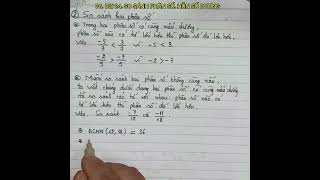 06. BÀI 24. SO SÁNH PHÂN SỐ. HỖN SỐ DƯƠNG
② So sánh hai phân số
a) Trong hai phân số có cùng mẫu dương
phân số nào có tử lớn hơn thì phân số đó lớn hơn.
-5/9 < 3/9 vì -5 < 3
> -7/9 vì -2 > -7
b) Muốn so sánh hai phân số không cùng mẫu,
ta viết chúng dưới dạng hai phân số có cùng mẫu dương
rồi so sánh các tử với nhau: phân số nào có
tử lớn hơn thì phân số đó lớn hơn.
So sánh -7/12 và -11/18
BCNN (12, 18) = 36